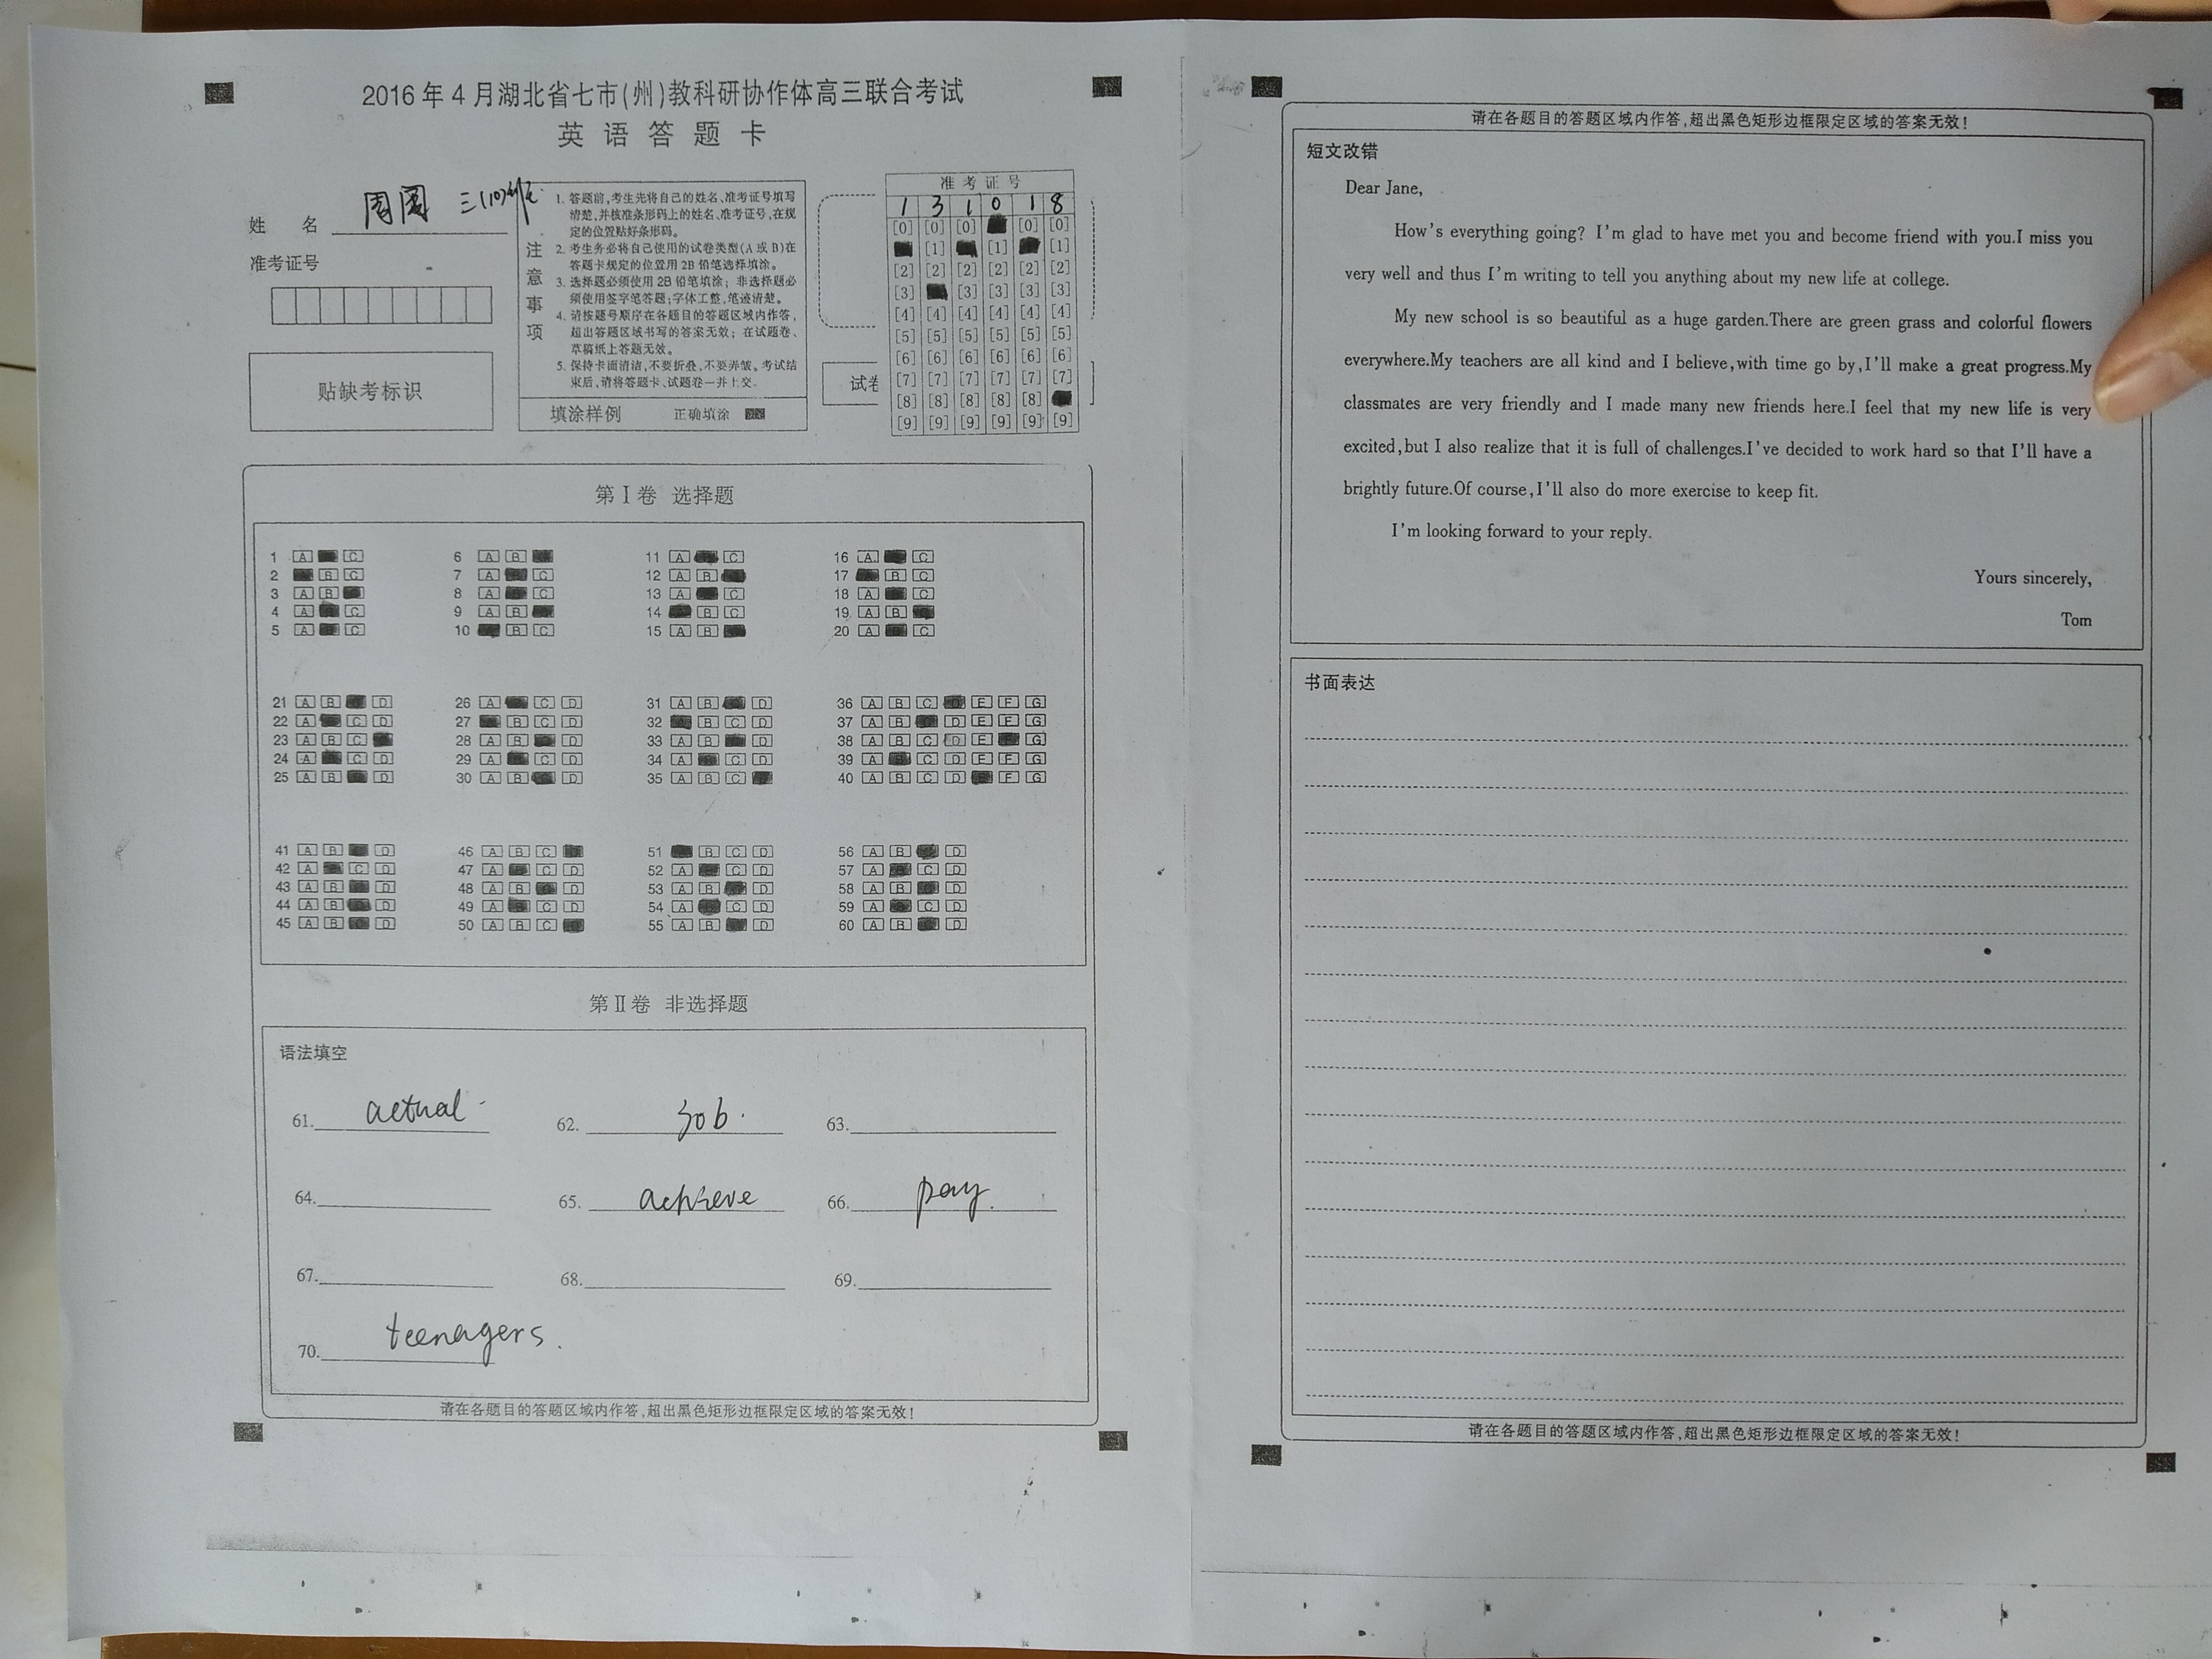 2016年4月湖北省七市(州)教科研协作体高三联合考试
英语答题卡
姓 名 周围 三(10)
准考证号
贴缺考标识
注意事项
1. 答题前,考生先将自己的姓名、准考证号填写
清楚,并核准条形码上的姓名、准考证号,在规
定的位置贴好条形码。
2. 考生务必将自己使用的试卷类型(A 或 B)在
答题卡规定的位置用2B铅笔选择填涂。
3. 选择题必须使用2B铅笔填涂; 非选择题必
须使用签字笔答题;字体工整,笔迹清楚。
4. 请按题号顺序在各题目的答题区域内作答,
超出答题区域书写的答案无效; 在试题卷、
草稿纸上答题无效。
5. 保持卡面清洁,不要折叠,不要弄皱。考试结
束后,请将答题卡、试题卷一并上交.
填涂样例 正确填涂
试卷
准考证号
1 3 1 0 1 8
[0] [0] [0] [0] [0]
[1] [1] [1]
[2] [2] [2] [2] [2] [2]
[3] [3] [3] [3] [3]
[4] [4] [4] [4] [4] [4]
[5] [5] [5] [5] [5] [5]
[6] [6] [6] [6] [6] [6]
[7] [7] [7] [7] [7] [7]
[8] [8] [8] [8] [8]
[9] [9] [9] [9] [9] [9]
第Ⅰ卷 选择题
1 A C 6 A B 11 A C 16 A C
2 B C 7 A C 12 A B 17 B C
3 A B 8 A C 13 A C 18 A C
4 A C 9 A B 14 B C 19 A B
5 A C 10 B C 15 A B 20 A C
21 A B D 26 A C D 31 A B D 36 A B C E F G
22 A C D 27 B C D 32 B C D 37 A B D E F G
23 A B C 28 A B D 33 A B D 38 A B C D E G
24 A C D 29 A C D 34 A C D 39 A C D E F G
25 A B D 30 A B D 35 A B C 40 A B C D F G
41 A B D 46 A B C 51 B C D 56 A B D
42 A C D 47 A C D 52 A C D 57 A C D
43 A B D 48 A B D 53 A B D 58 A B D
44 A B D 49 A C D 54 A C D 59 A C D
45 A B D 50 A B C 55 A B D 60 A B D
第Ⅱ卷 非选择题
语法填空
61. actual 62. job. 63.
64. 65. achieve 66. pay.
67. 68. 69.
70. teenagers.
请在各题目的答题区域内作答,超出黑色矩形边框限定区域的答案无效!
请在各题目的答题区域内作答,超出黑色矩形边框限定区域的答案无效!
短文改错
Dear Jane,
How's everything going? I'm glad to have met you and become friend with you.I miss you
very well and thus I'm writing to tell you anything about my new life at college.
My new school is so beautiful as a huge garden.There are green grass and colorful flowers
everywhere.My teachers are all kind and I believe,with time go by,I'll make a great progress.My
classmates are very friendly and I made many new friends here.I feel that my new life is very
excited,but I also realize that it is full of challenges.I've decided to work hard so that I'll have a
brightly future.Of course,I'll also do more exercise to keep fit.
I'm looking forward to your reply.
Yours sincerely,
Tom
书面表达
请在各题目的答题区域内作答,超出黑色矩形边框限定区域的答案无效!